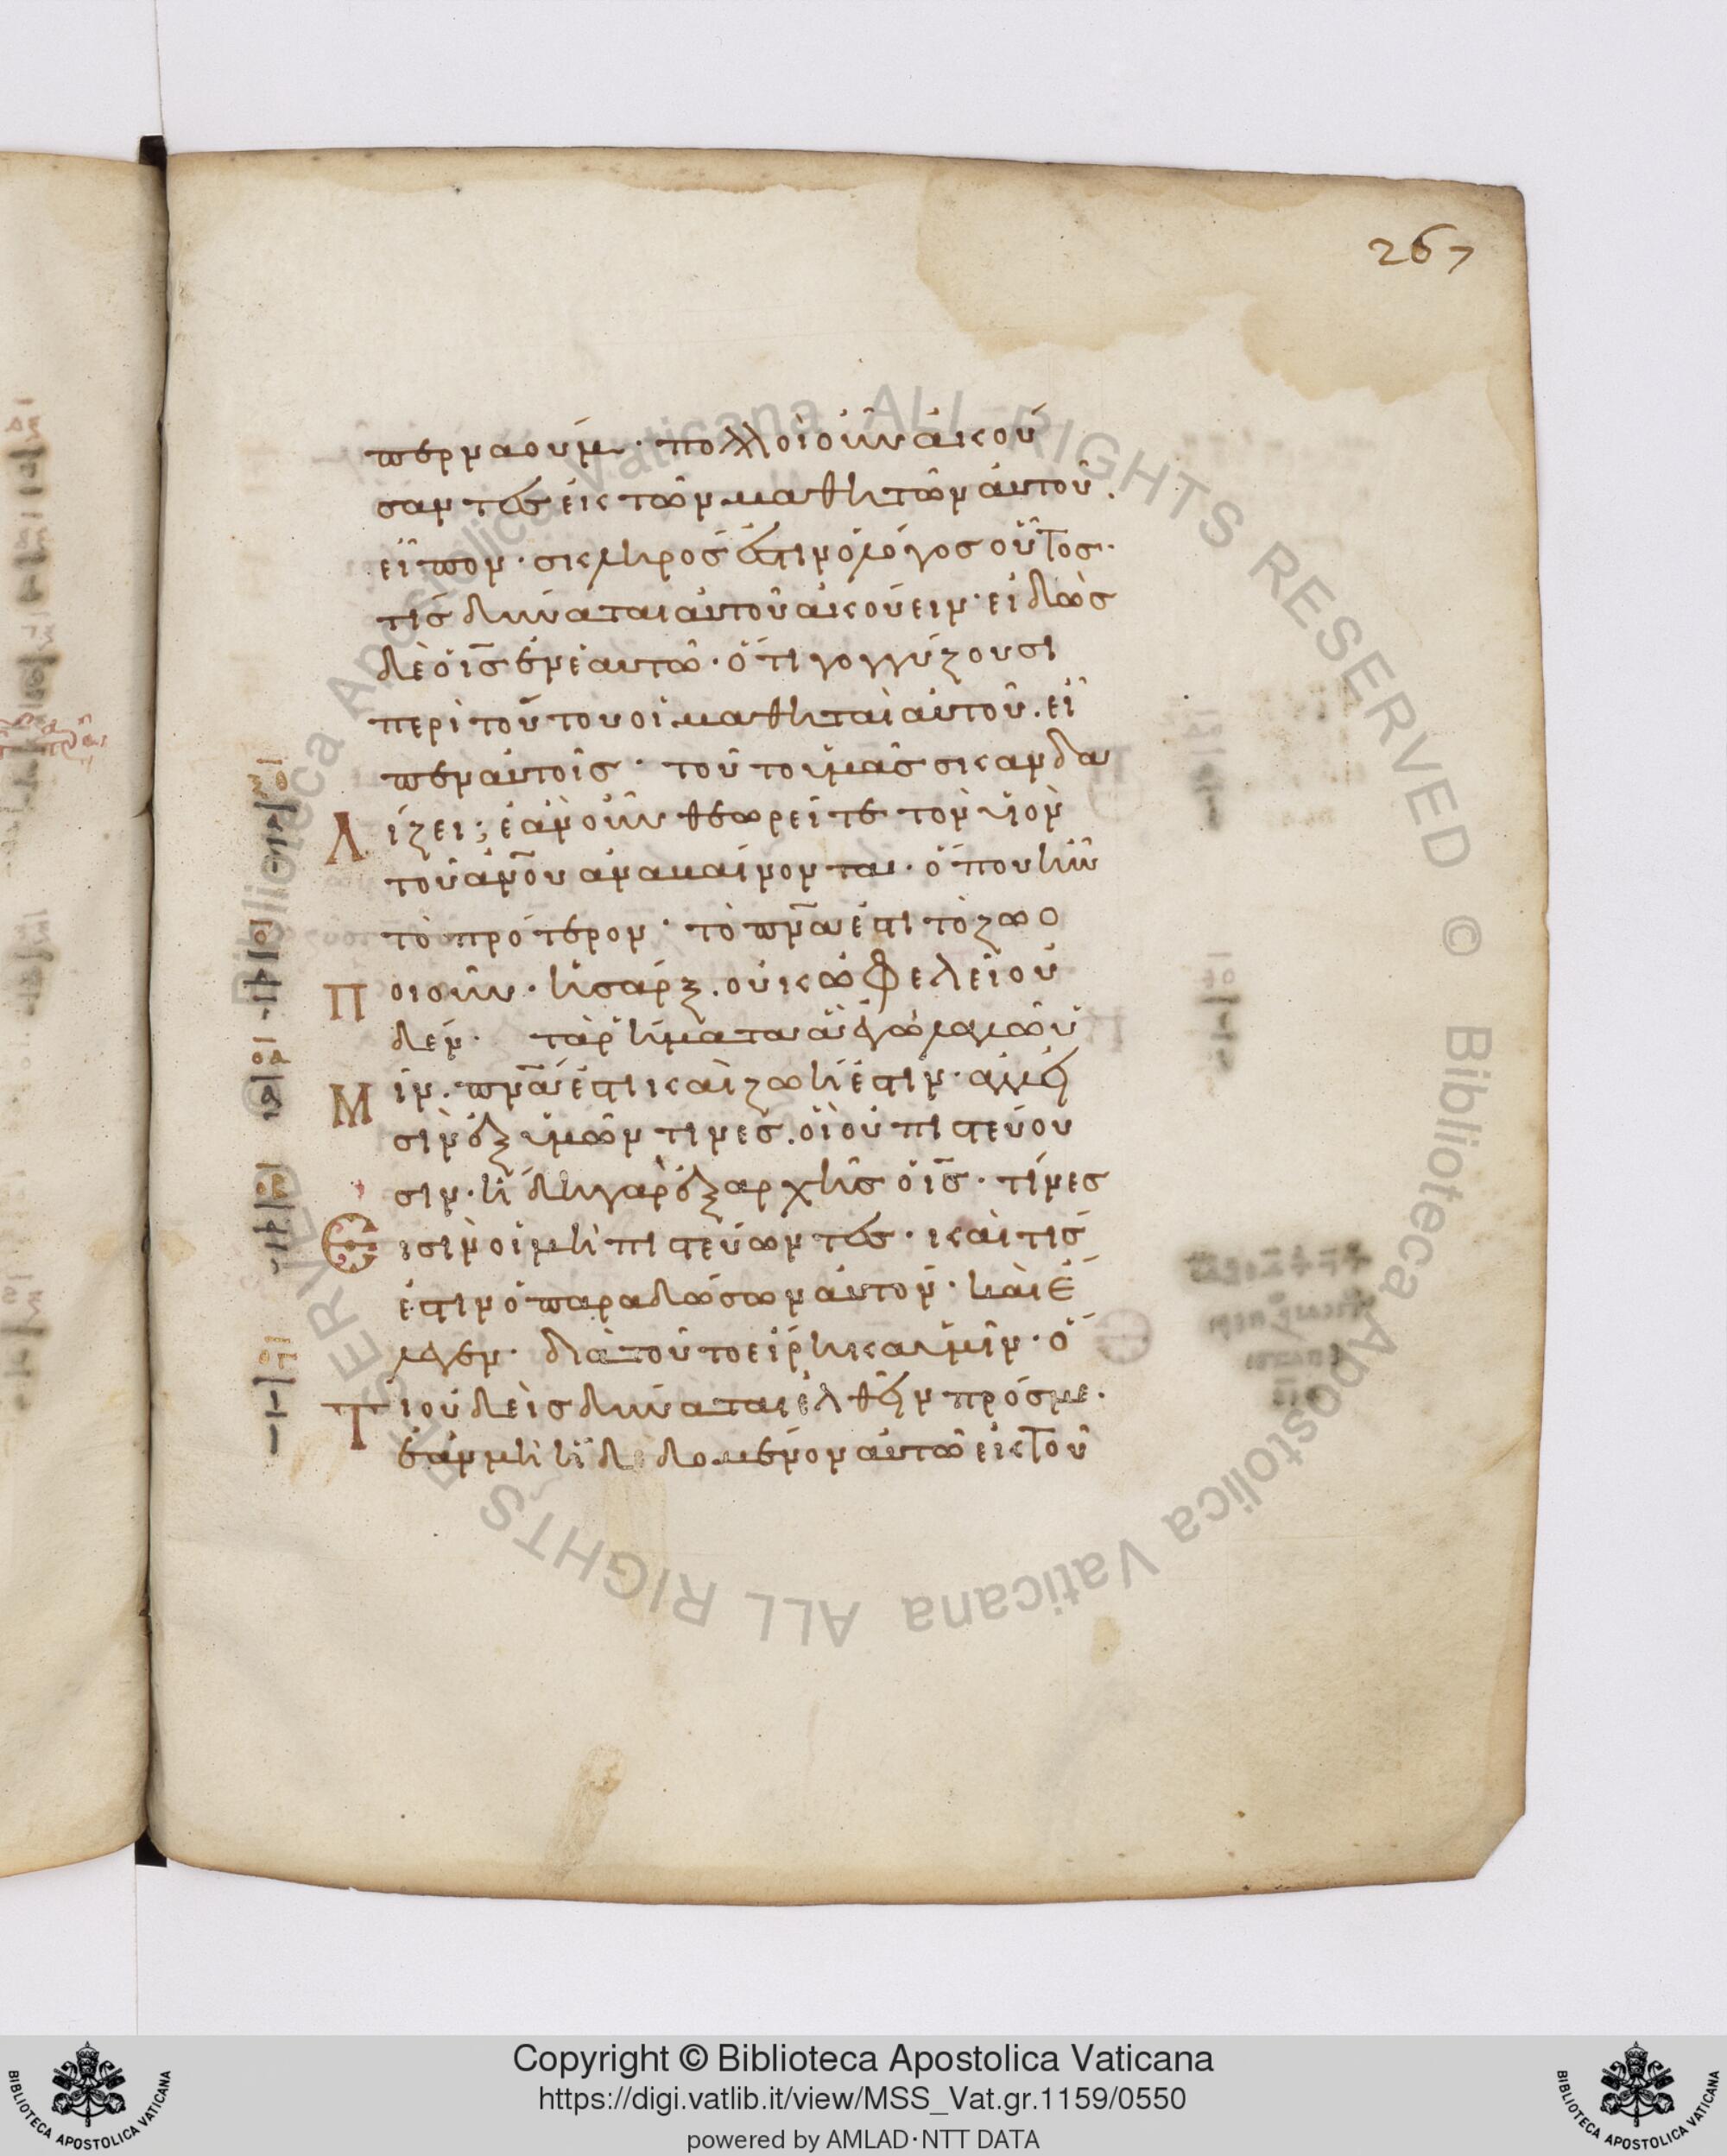 267
περναούμ· πολλοὶ οὖν ἀκού
σαντες ἐκ τῶν μαθητῶν αὐτοῦ.
εἶπον· σκληρός ἐστιν ὁ λόγος οὗτος·
τίς δύναται αὐτοῦ ἀκούειν· εἰδὼς
δὲ ὁ ις ἐν ἑαυτῶ· ὅτι γογγύζουσι
περὶ τούτου οἱ μαθηταὶ αὐτοῦ. εἶ
πεν αὐτοῖς· τοῦτο ὑμᾶς σκανδα
λίζει; ἐὰν οὖν θεωρεῖτε τὸν υἱὸν
τοῦ ανου ἀναβαίνοντα· ὅπου ἦν
τὸ πρότερον· τὸ πνα ἐστι τὸ ζωο
ποιοῦν· ἡ σάρξ. οὐκ ὠφελεῖ οὐ
δέν· τὰ ῥήματα ἃ ἐγὼ λαλῶ ὑ
μῖν. πνα ἐστι καὶ ζωή ἐστιν· ἀλλ'εἰ
σὶν ἐξ ὑμῶν τινες. οἳ οὐ πιστεύου
σιν· ἤδη γὰρ ἐξ αρχῆς ὁ ις· τίνες
εἰσὶν οἱ μὴ πιστεύωντες· καὶ τίς
ἐστιν ὁ παραδώσων αὐτόν· καὶ ἔ
λεγεν· διὰ τοῦτο εἴρηκα ὑμῖν· ὅ
τι οὐδεὶς δύναται ἐλθεῖν πρός με·
ἐὰν μὴ ἦ δεδομένον αὐτῶ ἐκ τοῦ
Copyright © Biblioteca Apostolica Vaticana
https://digi.vatlib.it/view/MSS_Vat.gr.1159/0550
powered by AMLAD·NTT DATA
BIBLIOTECA APOSTOLICA VATICANA
BIBLIOTECA APOSTOLICA VATICANA
© Biblioteca Apostolica Vaticana ALL RIGHTS RESERVED © Biblioteca Apostolica Vaticana ALL RIGHTS RESERVED